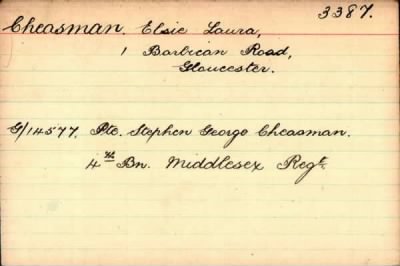 3387.
Cheasman, Elsie Laura,
1 Barbican Road,
Gloucester.
G/14577. Pte. Stephen George Cheasman.
4th Bn. Middlesex Regt.